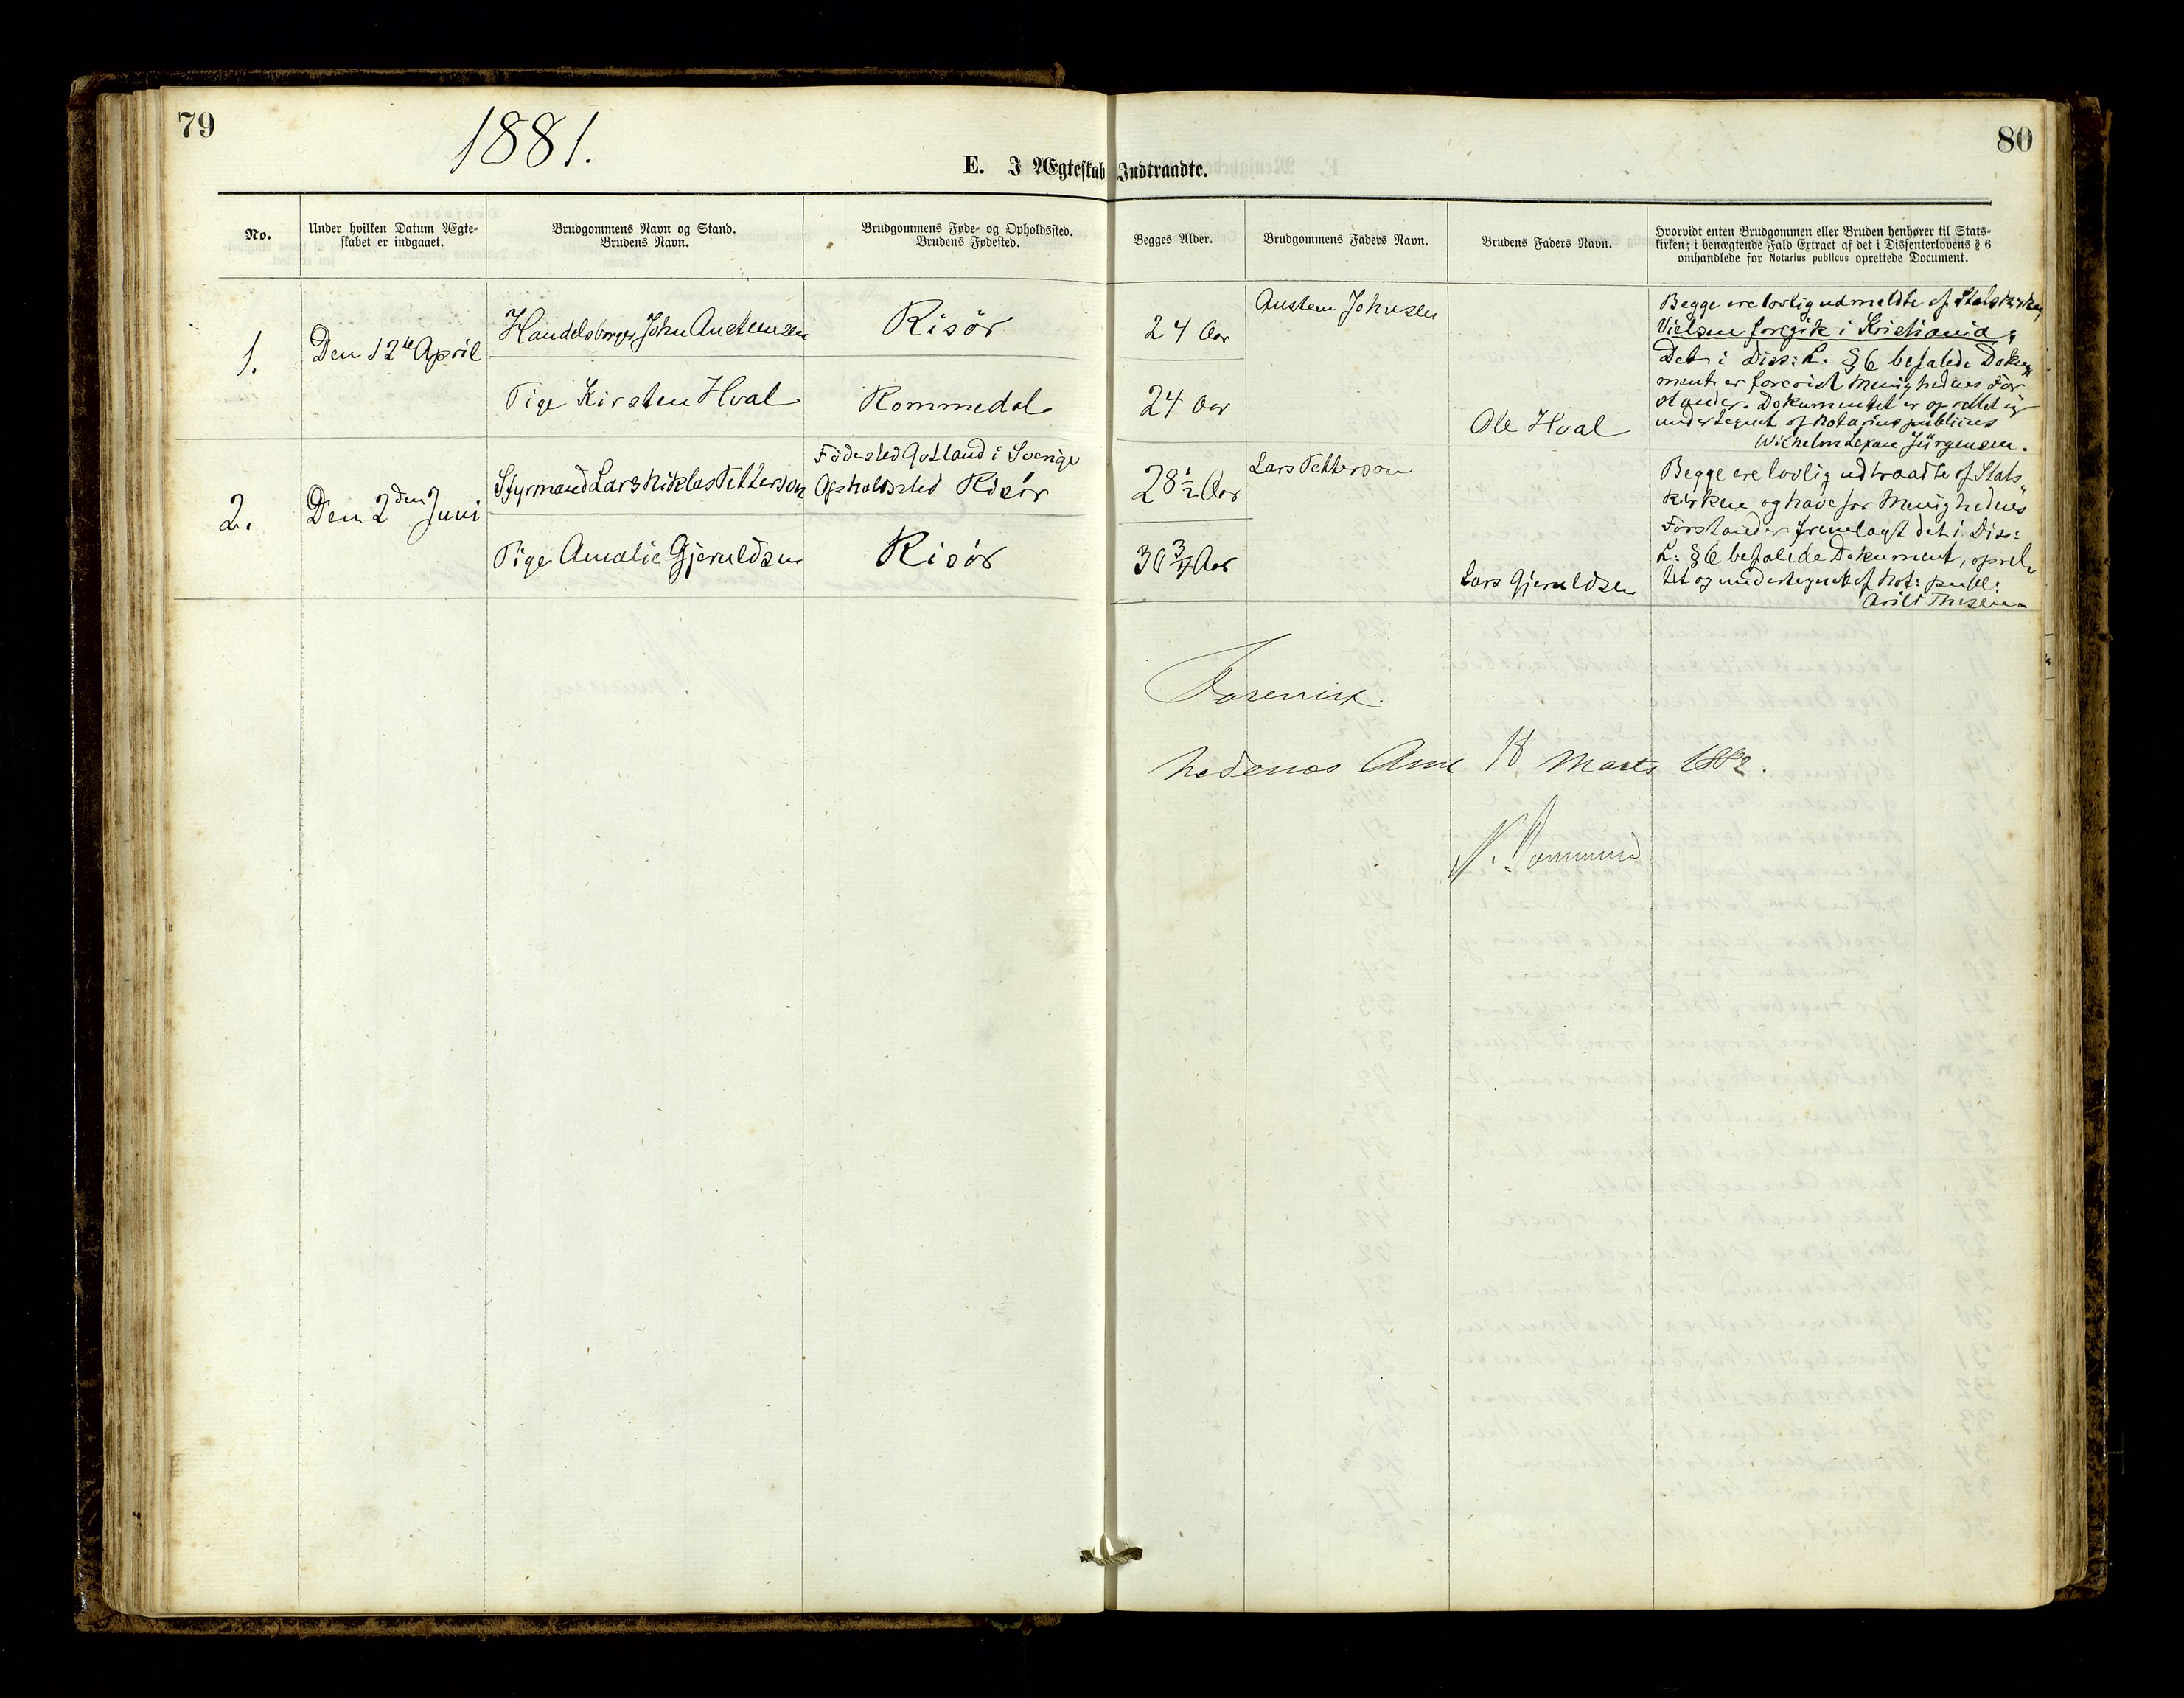 79
80
1881.
E. I Ægteskab Indtraadte.
No.
Under hvilken Datum Ægte-
skabet er indgaaet.
Brudgommens Navn og Stand.
Brudens Navn.
Brudgommens Føde- og Opholdssted.
Brudens Fødested.
Begges Alder.
Brudgommens Faders Navn.
Brudens Faders Navn.
Hvorvidt enten Brudgommen eller Bruden henhører til Stats-
kirken; i benægtende Fald Extract af det i Dissenterlovens § 6
omhandlede for Notarius publicus oprettede Document.
1.
Den 12te April
Handelsborger John Austensen
Risör
24 Aar
Austen Johnsen
Tige Kirsten Hval
Rommedal
24 Aar
Ole Hval
Begge ere lovlig udmeldte af Statskirken,
Vielsen foregik i Kristiania,
Det i Diss: L. § 6 befalede Doku-
ment er forevist Menighedens For
stander. Dokumentet er oprettet og
undertegnet af Notarius publicus
Wilhelm Jürgensen.
2.
Den 2den Juni
Styrmand Lars Niklas Petterson
Födested Gotland i Sverige
Opholdssted Risör
28 1/2 Aar
Lars Petterson
Tige Amalie Gjeruldsen
Risör
30 3/4 Aar
Lars Gjeruldsen
Begge ere lovlig udtraadte af Stats
kirken og have for Menighedens
Forstander fremlagt det i Diss:
L: § 6 befalede Dokument, opret
tet og undertegnet af Not: publ:
Arild Thesen.
Forevist.
Nedenes Amt 18 Marts 1882.